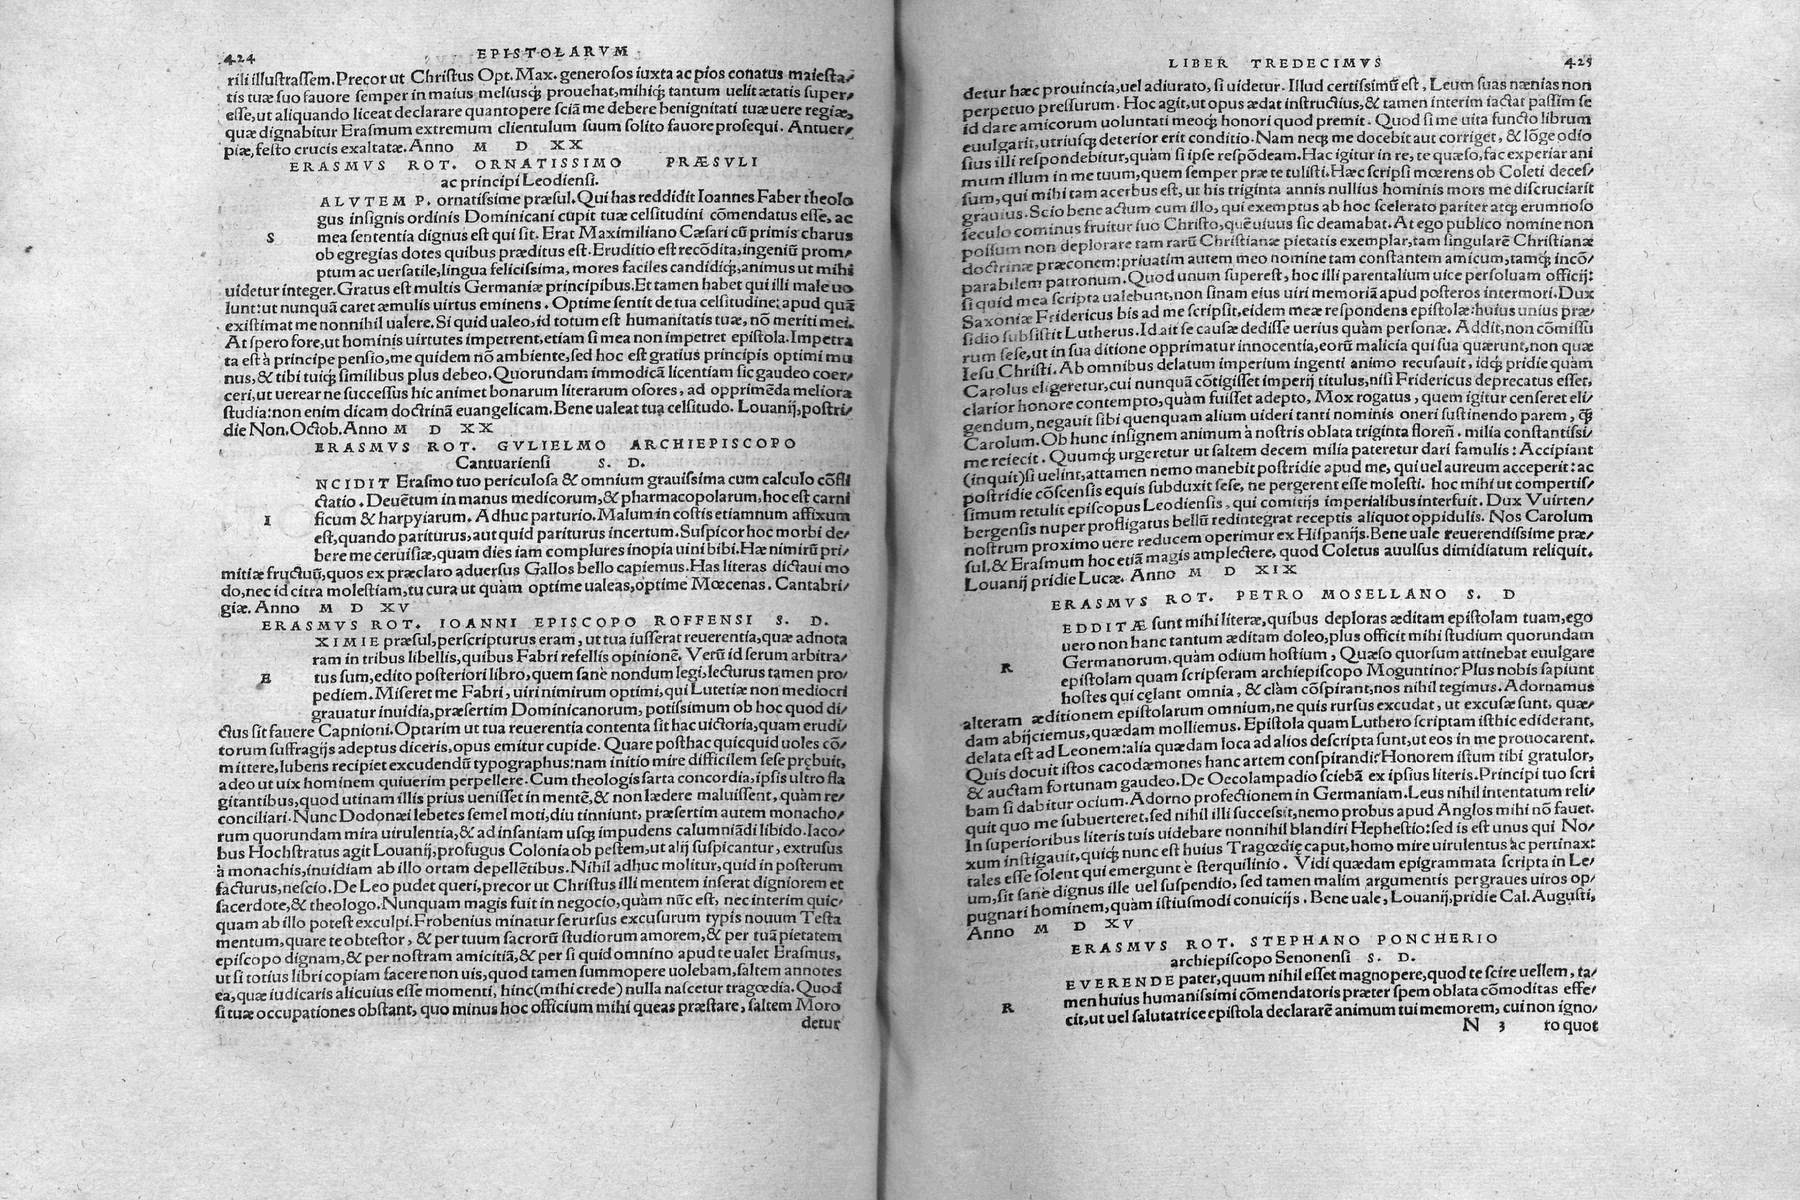 424 EPISTOLARVM
rili illustrassem. Precor ut Christus Opt. Max. generosos iuxta ac pios conatus maiesta/
tis tuæ suo fauore semper in maius meliusq́; prouehat, mihiq́; tantum uelit ætatis super/
esse, ut aliquando liceat declarare quantopere sciã me debere benignitati tuæ uere regiæ,
quæ dignabitur Erasmum extremum clientulum suum solito fauore prosequi. Antuer/
piæ, festo crucis exaltatæ. Anno M D XX
ERASMVS ROT. ORNATISSIMO PRÆSVLI
ac principi Leodiensi.
S
ALVTEM P. ornatissime præsul. Qui has reddidit Ioannes Faber theolo
gus insignis ordinis Dominicani cupit tuæ celsitudini cõmendatus esse, ac
mea sententia dignus est qui sit. Erat Maximiliano Cæsari cũ primis charus
ob egregias dotes quibus præditus est. Eruditio est recõdita, ingeniũ prom/
ptum ac uersatile, lingua felicissima, mores faciles candidiq́;, animus ut mihi
uidetur integer. Gratus est multis Germaniæ principibus. Et tamen habet qui illi male uo
lunt: ut nunquã caret æmulis uirtus eminens. Optime sentit de tua celsitudine: apud quã
existimat me nonnihil ualere. Si quid ualeo, id totum est humanitatis tuæ, nõ meriti mei.
At spero fore, ut hominis uirtutes impetrent, etiam si mea non impetret epistola. Impetra
ta est à principe pensio, me quidem nõ ambiente, sed hoc est gratius principis optimi mu
nus, & tibi tuiq́; similibus plus debeo. Quorundam immodicã licentiam sic gaudeo coer/
ceri, ut uerear ne successus hic animet bonarum literarum osores, ad opprimẽda meliora
studia: non enim dicam doctrinã euangelicam. Bene ualeat tua celsitudo. Louanij, postri/
die Non. Octob. Anno M D XX
ERASMVS ROT. GVLIELMO ARCHIEPISCOPO
Cantuariensi S. D.
I
NCIDIT Erasmo tuo periculosa & omnium grauissima cum calculo cõfli
ctatio. Deuẽtum in manus medicorum, & pharmacopolarum, hoc est carni
ficum & harpyiarum. Adhuc parturio. Malum in costis etiamnum affixum
est, quando pariturus, aut quid pariturus incertum. Suspicor hoc morbi de/
bere me ceruisiæ, quam dies iam complures inopia uini bibi. Hæ nimirũ pri/
mitiæ fructuũ, quos ex præclaro aduersus Gallos bello capiemus. Has literas dictaui mo
do, nec id citra molestiam, tu cura ut quàm optime ualeas, optime Mœcenas. Cantabri/
giæ. Anno M D XV
ERASMVS ROT. IOANNI EPISCOPO ROFFENSI S. D.
E
XIMIE præsul, perscripturus eram, ut tua iusserat reuerentia, quæ adnota
ram in tribus libellis, quibus Fabri refellis opinionẽ. Verũ id serum arbitra/
tus sum, edito posteriori libro, quem sanè nondum legi, lecturus tamen pro/
pediem. Miseret me Fabri, uiri nimirum optimi, qui Lutetiæ non mediocri
grauatur inuidia, præsertim Dominicanorum, potissimum ob hoc quod di/
ctus sit fauere Capnioni. Optarim ut tua reuerentia contenta sit hac uictoria, quam erudi/
torum suffragijs adeptus diceris, opus emitur cupide. Quare posthac quicquid uoles cõ/
mittere, lubens recipiet excudendũ typographus: nam initio mire difficilem sese prębuit,
adeo ut uix hominem quiuerim perpellere. Cum theologis sarta concordia, ipsis ultro fla
gitantibus, quod utinam illis prius uenisset in mentẽ, & non lædere maluissent, quàm re/
conciliari. Nunc Dodonæi lebetes semel moti, diu tinniunt, præsertim autem monacho/
rum quorundam mira uirulentia, & ad insaniam usq́; impudens calumniãdi libido. Iaco/
bus Hochstratus agit Louanij, profugus Colonia ob pestem, ut alij suspicantur, extrusus
à monachis, inuidiam ab illo ortam depellẽtibus. Nihil adhuc molitur, quid in posterum
facturus, nescio. De Leo pudet queri, precor ut Christus illi mentem inserat digniorem et
sacerdote, & theologo. Nunquam magis fuit in negocio, quàm nũc est, nec interim quic/
quam ab illo potest exculpi. Frobenius minatur se rursus excusurum typis nouum Testa
mentum, quare te obtestor, & per tuum sacrorũ studiorum amorem, & per tuã pietatem
episcopo dignam, & per nostram amicitiã, & per si quid omnino apud te ualet Erasmus,
ut si totius libri copiam facere non uis, quod tamen summopere uolebam, saltem annotes
ea, quæ iudicaris alicuius esse momenti, hinc (mihi crede) nulla nascetur tragœdia. Quod
si tuæ occupationes obstant, quo minus hoc officium mihi queas præstare, saltem Moro
detur
LIBER TREDECIMVS 425
detur hæc prouincia, uel adiurato, si uidetur. Illud certissimũ est, Leum suas nænias non
perpetuo pressurum. Hoc agit, ut opus ædat instructius, & tamen interim iactat passim se
id dare amicorum uoluntati meoq́; honori quod premit. Quod si me uita functo librum
euulgarit, utriusq́; deterior erit conditio. Nam neq́; me docebit aut corriget, & lõge odio
sius illi respondebitur, quàm si ipse respõdeam. Hac igitur in re, te quæso, fac experiar ani
mum illum in me tuum, quem semper præ te tulisti. Hæc scripsi mœrens ob Coleti deces/
sum, qui mihi tam acerbus est, ut his triginta annis nullius hominis mors me discruciarit
grauius. Scio bene actum cum illo, qui exemptus ab hoc scelerato pariter atq́; erumnoso
seculo cominus fruitur suo Christo, quẽ uiuus sic deamabat. At ego publico nomine non
possum non deplorare tam rarũ Christianæ pietatis exemplar, tam singularẽ Christianæ
doctrinæ præconem: priuatim autem meo nomine tam constantem amicum, tamq́; incõ/
parabilem patronum. Quod unum superest, hoc illi parentalium uice persoluam officij:
si quid mea scripta ualebunt, non sinam eius uiri memoriã apud posteros intermori. Dux
Saxoniæ Fridericus bis ad me scripsit, eidem meæ respondens epistolæ: huius unius præ/
sidio subsistit Lutherus. Id ait se causæ dedisse uerius quàm personæ. Addit, non cõmissu
rum sese, ut in sua ditione opprimatur innocentia, eorũ malicia qui sua quærunt, non quæ
Iesu Christi. Ab omnibus delatum imperium ingenti animo recusauit, idq́; pridie quàm
Carolus eligeretur, cui nunquã cõtigisset imperij titulus, nisi Fridericus deprecatus esset,
clarior honore contempto, quàm fuisset adepto, Mox rogatus, quem igitur censeret eli/
gendum, negauit sibi quenquam alium uideri tanti nominis oneri sustinendo parem, q̃
Carolum. Ob hunc insignem animum à nostris oblata triginta floreñ. milia constantissi/
me reiecit. Quumq́; urgeretur ut saltem decem milia pateretur dari famulis: Accipiant
(inquit) si uelint, attamen nemo manebit postridie apud me, qui uel aureum acceperit: ac
postridie cõscensis equis subduxit sese, ne pergerent esse molesti. hoc mihi ut compertis/
simum retulit episcopus Leodiensis, qui comitijs imperialibus interfuit. Dux Vuirten/
bergensis nuper profligatus bellũ redintegrat receptis aliquot oppidulis. Nos Carolum
nostrum proximo uere reducem operimur ex Hispanijs. Bene uale reuerendissime præ/
sul, & Erasmum hoc etiã magis amplectere, quod Coletus auulsus dimidiatum reliquit.
Louanij pridie Lucæ. Anno M D XIX
ERASMVS ROT. PETRO MOSELLANO S. D
R
EDDITÆ sunt mihi literæ, quibus deploras æditam epistolam tuam, ego
uero non hanc tantum æditam doleo, plus officit mihi studium quorundam
Germanorum, quàm odium hostium, Quæso quorsum attinebat euulgare
epistolam quam scripseram archiepiscopo Moguntino? Plus nobis sapiunt
hostes qui cęlant omnia, & clàm cõspirant, nos nihil tegimus. Adornamus
alteram æditionem epistolarum omnium, ne quis rursus excudat, ut excusæ sunt, quæ/
dam abijciemus, quædam molliemus. Epistola quam Luthero scriptam isthic ediderant,
delata est ad Leonem: alia quædam loca ad alios descripta sunt, ut eos in me prouocarent.
Quis docuit istos cacodæmones hanc artem conspirandi? Honorem istum tibi gratulor,
& auctam fortunam gaudeo. De Oecolampadio sciebã ex ipsius literis. Principi tuo scri
bam si dabitur ocium. Adorno profectionem in Germaniam. Leus nihil intentatum reli/
quit quo me subuerteret, sed nihil illi successit, nemo probus apud Anglos mihi nõ fauet.
In superioribus literis tuis uidebare nonnihil blandiri Hephestio: sed is est unus qui No/
xum instigauit, quiq́; nunc est huius Tragœdię caput, homo mire uirulentus ac pertinax:
tales esse solent qui emergunt è sterquilinio. Vidi quædam epigrammata scripta in Le/
um, sit sanè dignus ille uel suspendio, sed tamen malim argumentis pergraues uiros op/
pugnari hominem, quàm istiusmodi conuicijs. Bene uale, Louanij, pridie Cal. Augusti,
Anno M D XV
ERASMVS ROT. STEPHANO PONCHERIO
archiepiscopo Senonensi S. D.
R
EVERENDE pater, quum nihil esset magnopere, quod te scire uellem, ta/
men huius humanissimi cõmendatoris præter spem oblata cõmoditas effe/
cit, ut uel salutatrice epistola declararẽ animum tui memorem, cui non igno/
N 3 ro quot